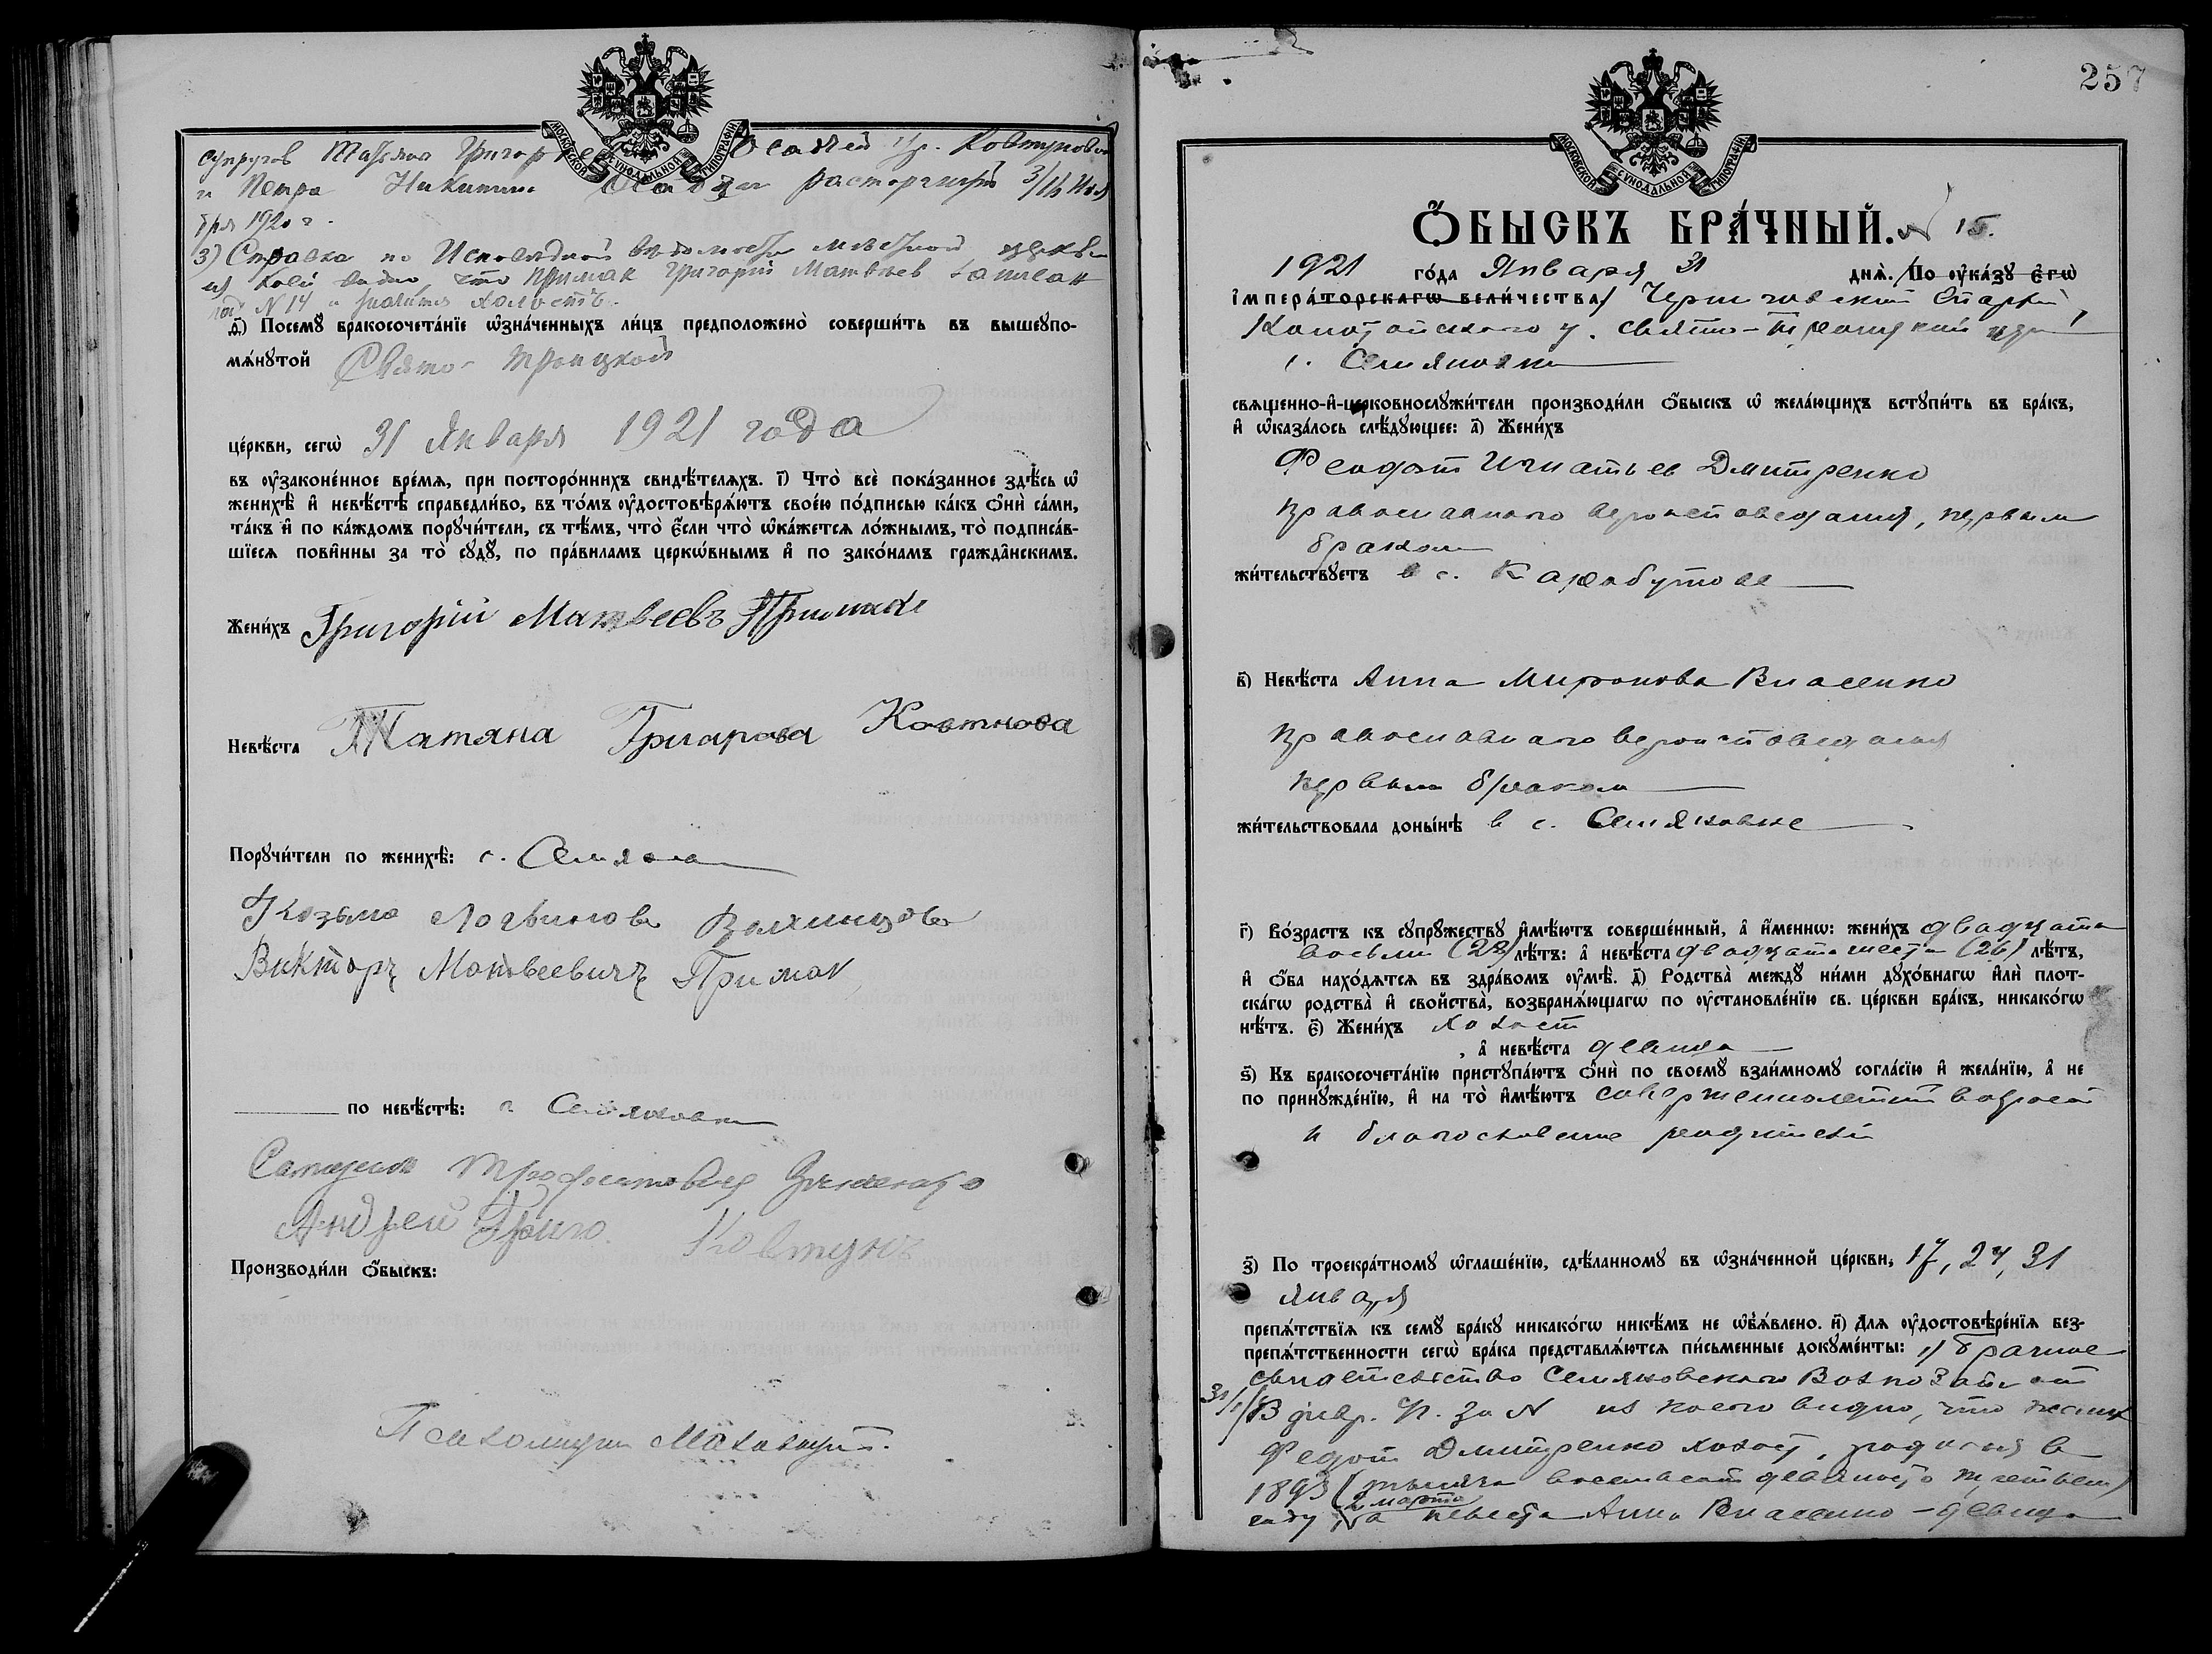 супругов Татьяна Григор Осадчей ур. Ковтуновой
и Петра Никитина Осадчаго расторгнут 3/16 Нояб
бря 1920 г.
3) Справка по Исповедной ведомости местной церкви
из коей видно, что Примак Григорий Матвеев записан
под № 14 и значится холостъ.
МОСКОВСКОЙ СѴНОДАЛЬНОЙ ТИПОГРАФІИ
ѳ҃) Посемꙋ̀ бракосочета́нїе ѡ҆зна́ченныхъ ли́цъ предположено̀ соверши́ть въ вышеупо-
мѧ́нꙋтой Свято-Троицкой
це́ркви, сегѡ̀ 31 Января 1921 года
въ ᲂу҆законе́нное вре́мѧ, при посторо́ннихъ свидѣ́телѧхъ. і҃) Что̀ всѐ пока́занное здѣ́сь ѡ҆
женихѣ̀ и҆ невѣ́стѣ справедли́во, въ то́мъ ᲂу҆достовѣрѧ́ютъ свое́ю по́дписью ка́къ ѻ҆нѝ са́ми,
та́къ и҆ по ка́ждомъ порꙋчи́тели, съ тѣ́мъ, что̀ є҆́сли что̀ ѡ҆ка́жется ло́жнымъ, то̀ подписа́в-
шїеся пови́нны за то̀ сꙋдꙋ̀, по пра́виламъ церкѡ́внымъ и҆ по зако́намъ гражда̂нскимъ.
Жени́хъ Григорій Матвеевъ Примакъ
Невѣ́ста Татяна Григорова Ковтнова
Порꙋчи́тели по женихѣ̀: с. Семяновки
Козьма Логвинов
Викторъ Матвеевичъ Примак
по невѣ́стѣ: с. Семяновки
Андрей Григо. Ковтунъ
Производи́ли ѻ҆́быскъ:
Псаломщик
257
МОСКОВСКОЙ СѴНОДАЛЬНОЙ ТИПОГРАФІИ
Ѻ҆́БЫСКЪ БРА́ЧНЫЙ. № 15.
1921 го́да Января 31 днѧ̀. /По ᲂу҆ка́зꙋ Є҆гѡ̀
І҆мпера́торскагѡ вели́чества/ Черниговской Епархии,
Конотопского у. Свято-Троицкой церкви
с. Семяновки
свѧще́нно-и҆-церковнослꙋжи́тели производи́ли ѻ҆́быскъ ѡ҆ жела́ющихъ встꙋпи́ть въ бра́къ,
и҆ ѡ҆каза́лось слѣ́дꙋющее: а҃) Жени́хъ
Феодот Игнатьев Дмитренко
православного вероисповедания, первым
браком
жи́тельствꙋетъ в с. Карабутове
в҃) Невѣ́ста Анна Миронова Власенко
православного вероисповедания
первым браком
жи́тельствовала доны́нѣ в с. Семяновке
г҃) Во́зрастъ къ сꙋпрꙋ́жествꙋ и҆мѣ́ютъ соверше́нный, а҆ и҆́меннѡ: жени́хъ двадцати
восьми (28) лѣ́тъ: а҆ невѣ́ста двадцати шести (26) лѣ́тъ,
и҆ ѻ҆́ба нахо́дѧтсѧ въ здра́вомъ ᲂу҆мѣ̀. д҃) Родства̀ междꙋ̀ ни́ми дꙋхо́внагѡ и҆лѝ плот-
ска́гѡ родства̀ и҆ свойства̀, возбранѧ́ющагѡ по ᲂу҆становле́нїю св. це́ркви бра́къ, никако́гѡ
нѣ́тъ. є҃) Жени́хъ холост
, а҆ невѣ́ста девица
ѕ҃) Къ бракосочета́нїю пристꙋпа́ютъ ѻ҆нѝ по своемꙋ̀ взаи́мномꙋ согла́сїю и҆ жела́нїю, а҆ не
по принꙋжде́нїю, и҆ на то̀ и҆мѣ́ютъ совершеннолетний возраст
и благословение родителей
з҃) По троекра́тномꙋ ѡ҆глаше́нїю, сдѣ́ланномꙋ въ ѡ҆зна́ченной це́ркви, 17, 24, 31
января
препѧ́тствїѧ къ семꙋ̀ бра́кꙋ никако́гѡ никѣ́мъ не ѡ҆б̾ѧ́влено. и҃) Для ᲂу҆достовѣре́нїѧ без-
препѧ́тственности сегѡ̀ бра́ка представлѧ́ютсѧ пи́сьменные докꙋме́нты: 1) брачное
свидетельство Семяновского от
31/1 за № из коего видно, что жених
Федот Дмитренко холост, родился в
1893 (тысяча восемьсот девяносто третьем)
2 марта
году, а невеста Анна Власенко - девица